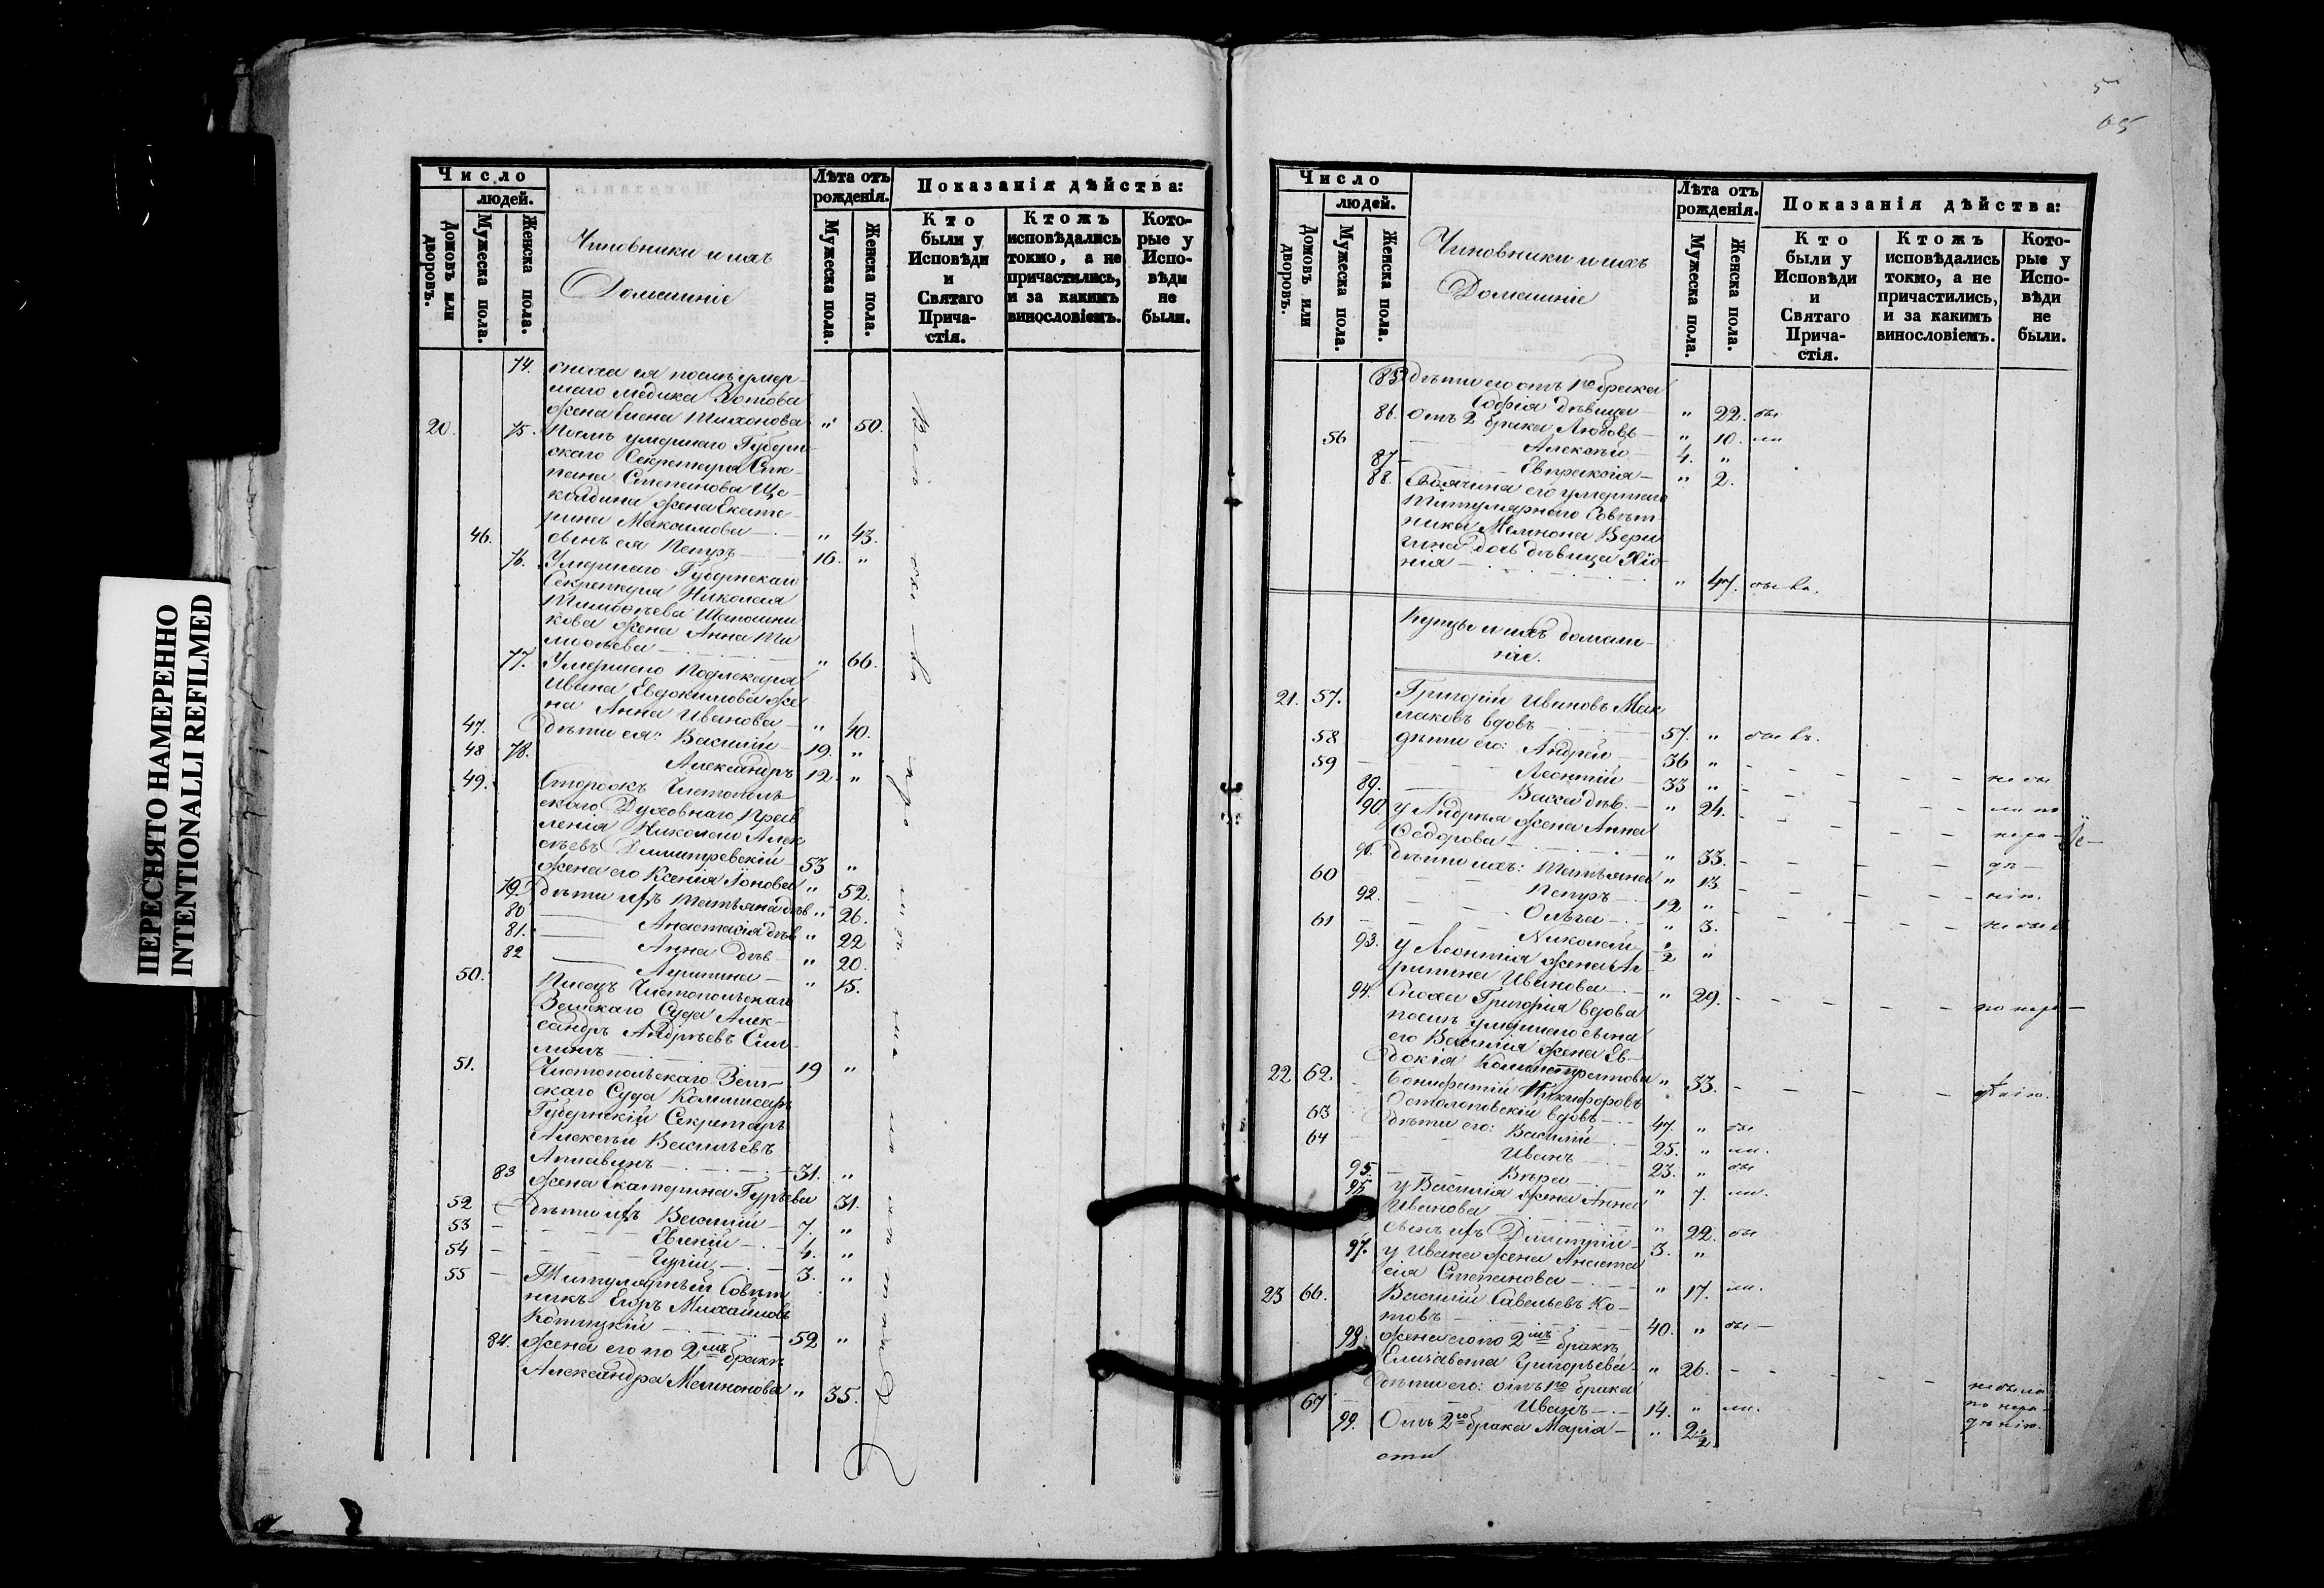 ПЕРЕСНЯТО НАМЕРЕННО
INTENTIONALLI REFILMED
Число
людей.
Домовъ или дворовъ.
Мужеска пола.
Женска пола.
Чиновники и ихъ
Домашніе
Лѣта отъ рожденія.
Мужеска пола.
Женска пола.
Показанія дѣйства:
Кто были у Исповѣди и Святаго Прича-стія.
Ктожъ исповѣдались токмо, а не причастились, и за какимъ винословіемъ.
Кото-рые у Испо-вѣди не были.
74. сноха ея послѣ умер-
шаго медика Зотова
жена Елена Тихонова " 50.
20. 75. Послѣ умершаго Губерн-
скаго Секретаря Сте-
пана Степанова Ще-
колдина жена Екате-
рина Максимова " 43.
46. сынъ ея Петръ 16. "
76. Умершаго Губернскаго
Секретаря Николая
Тимофѣева
кова жена Анна Ти
мофѣева " 66.
77. Умершаго Подлекаря
Ивана Евдокимова же
на Анна Иванова " 40.
47. дѣти ея: Василій 19. "
48 78. Александръ 12. "
49. Сторожъ Чистополь
скаго Духовнаго Прав
ленія Николай Алек
сѣевъ Димитревскій 53 "
жена его Ксенія Іонова " 52.
79. дѣти ихъ Татьяна дѣв " 26.
80 Анастасія дѣв " 22
81. Анна дѣв " 20.
82 Агрипина " 15.
50. Писецъ Чистопольскаго
Земскаго Суда Алек-
сандръ Андрѣевъ
19 "
51. Чистопольскаго Зем-
скаго Суда Комисаръ
Губернскій Секретарь
Алексѣй Васильевъ
31. "
83 жена Екатерина Гурьева 31.
52 дѣти ихъ Василій 7. "
53 Евгеній 4. "
54 Гурій 3. "
55 Титулярный Совѣт
никъ Егоръ Михайловъ
52 "
84. жена его по 2мъ бракѣ
Александра Мемнонова " 35.
5
65
Число
людей.
Домовъ или дворовъ.
Мужеска пола.
Женска пола.
Чиновники и ихъ
Домашніе
Лѣта отъ рожденія.
Мужеска пола.
Женска пола.
Показанія дѣйства:
Кто были у Исповѣди и Святаго Прича-стія.
Ктожъ исповѣдались токмо, а не причастились, и за какимъ винословіемъ.
Кото-рые у Испо-вѣди не были.
85 дѣти его отъ 1го брака
Софія дѣвица " 22. бы
86. отъ 2 брака Любовь " 10. ли
56 Алексѣй 4. "
87 Евпраксія " 2.
88. Своячина его умершаго
Титулярнаго Совѣт
ника Мемнона Вери
гина дочь дѣвица Хіо-
нія " 47. была.
Купцы и ихъ домаш-
ніе.
21. 57. Григорій Ивановъ Мак
лаковъ вдовъ 57. " былъ.
58 дѣти его: Андрей 36 "
59 Леонтій 33 " не бы
89. Васса дѣв. " 24. ли по
90. у Андрея жена Анна
Ѳедорова " 33. нера-
91. дѣти ихъ: Татьяна " 13. дѣ-
60 Петръ 12 " нію.
92. Ольга " 3.
61 Николай 1/2 "
93. у Леонтія жена Аг-
рипина Иванова " 29. по нера-
94. Сноха Григорія вдова
послѣ умершаго сына
его Василія жена Ев-
докія Калистратова " 33. дѣнію.
22 62 Бонифатій Никифоровъ
Остолоповскій вдовъ 47. " бы
63 дѣти его: Василій 25. " ли.
64 Иванъ 23. " бы
95. Вѣра " 7. ли.
95 у Василія жена Анна
Иванова " 22. бы
сынъ ихъ Димитрій 3. "
97. у Ивана жена Анаста
сія Степанова " 17. ли.
23 66. Василій Савельевъ Ко-
товъ 40. " бы
98. жена его по 2мъ бракѣ
Елизавета Григорьева " 26. не была
дѣти его: отъ 1го брака по нера-
67 Иванъ 14. " ли. дѣнію.
99. Отъ 2го брака Марія " 2 1/2